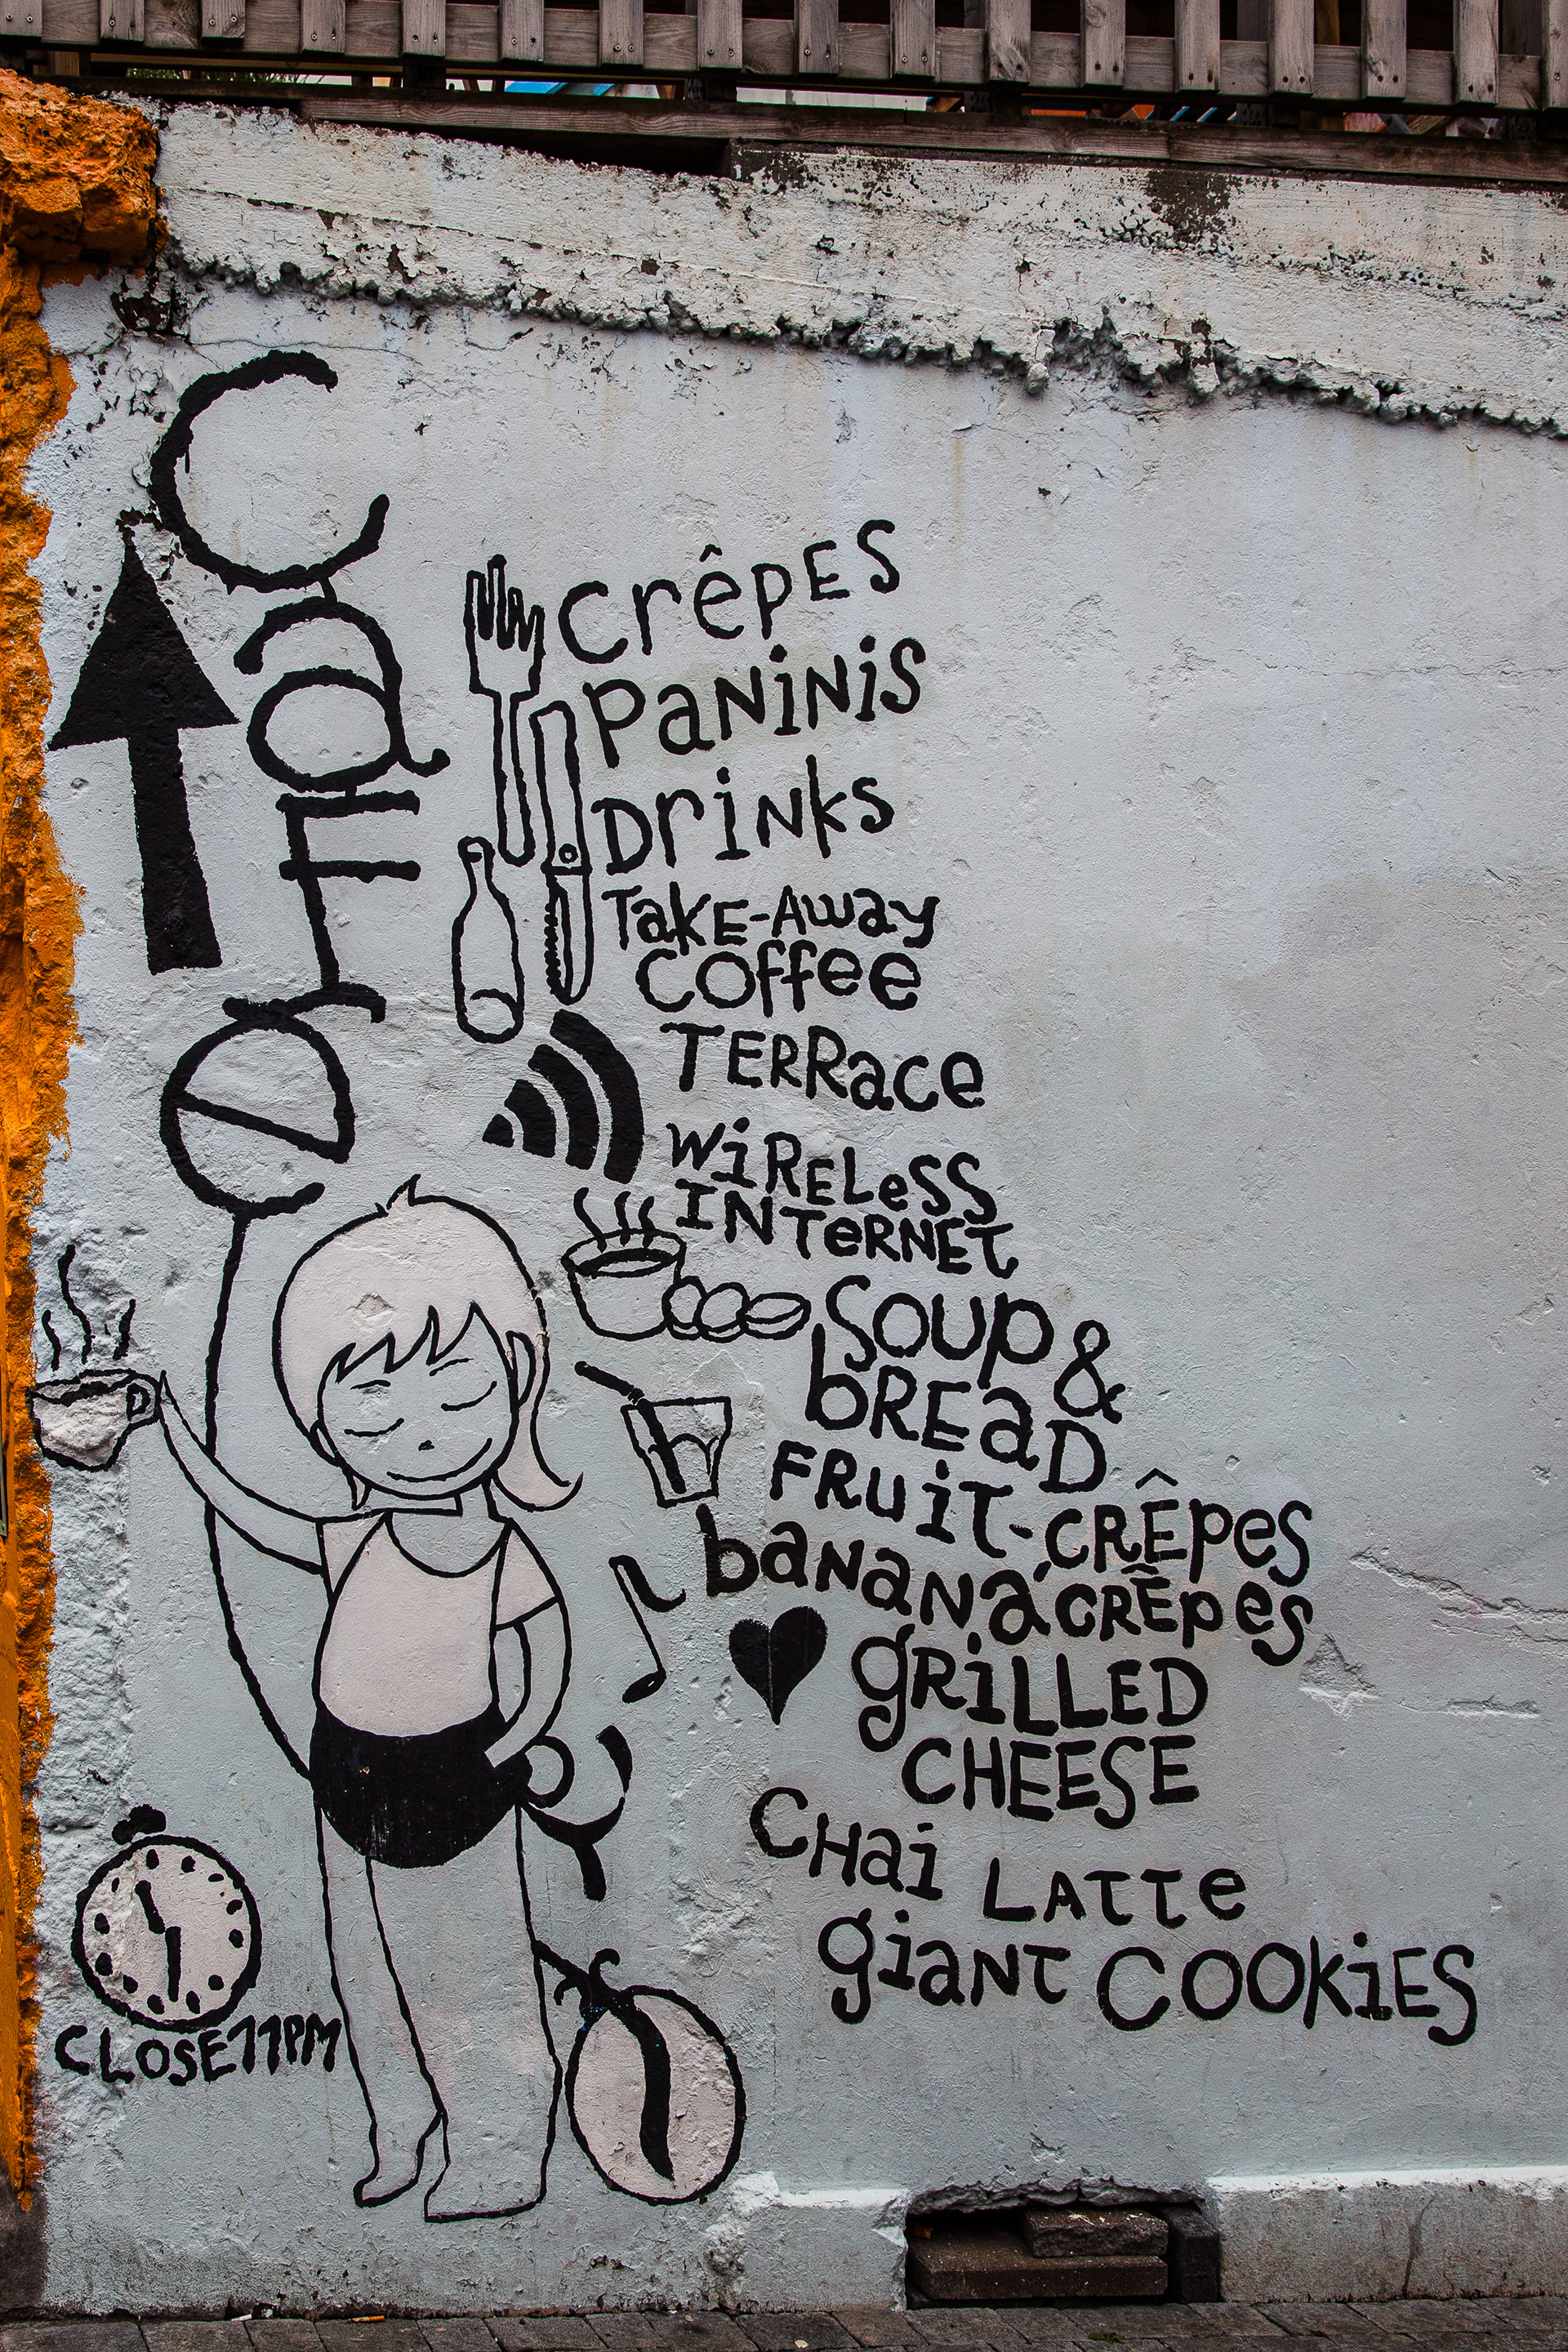 Cafe
CrêpES
PaNiNiS
DriNks
TakE-Away
Coffee
TERRace
WiRELeSS
INTeRNET
Soup &
bREaD
FRuiT-CRÊpes
baNaNa CRÊpes
gRiLLED
CHEESE
CHai LATTe
giaNT COOKiES
CLOSE 11PM